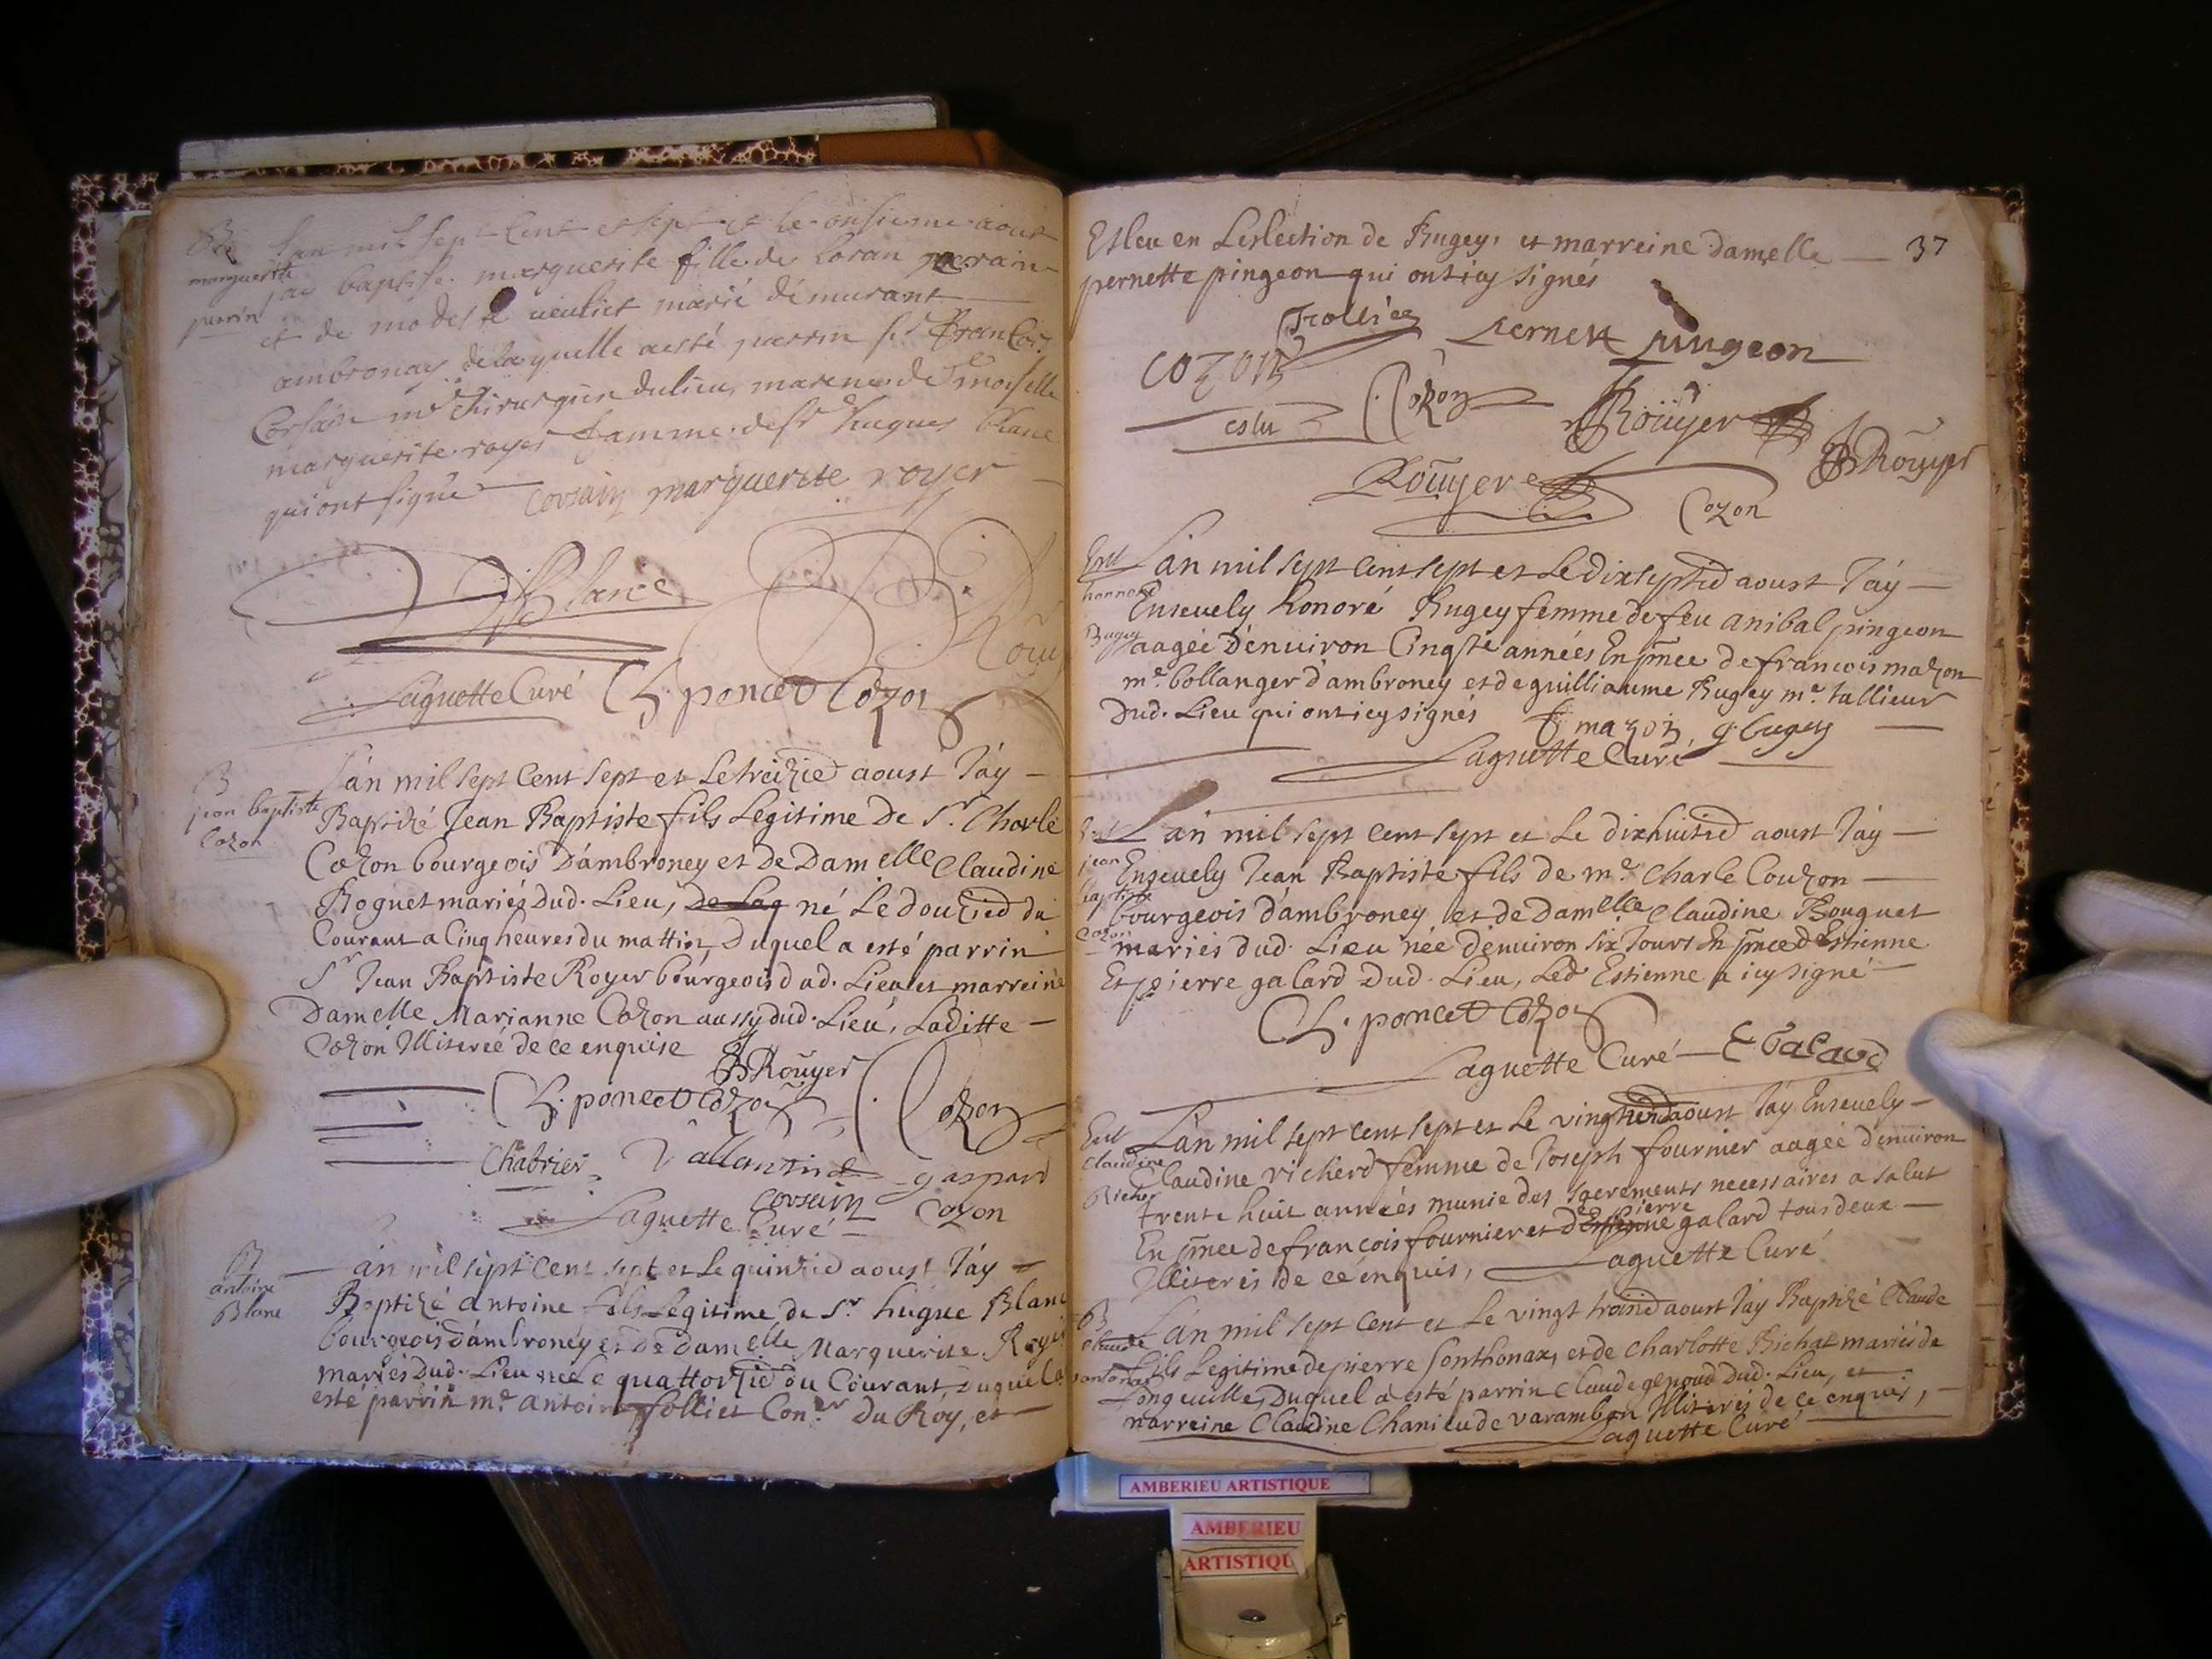 Lan mil sept Cent et sept et le onsieme aout
marguerite
perrin
jay baptise marguerite fille de loran perrain
et de modeste ueuliet marié démurant
ambronay de laquelle aesté parrin sr Francois
Corsain mre Chirurgien dulieu, marene demoiselle
marguerite royer famme de sr hugues blanc
qui ont signe corsain marguerite royer
Blanc
Laguette Curé Ch. poncet Cozon
B
jean baptiste
Cozon
Lán mil sept Cent sept et Le treizied aoust Jáy
Baptizé Jean Baptiste fils Legitime De Sr Charle
Cozon bourgeois D'ambroney et De Damelle Claudine
Roguet mariés Dud. Lieu, de Laq né Le douzied du
Courant a Cinq heures du mattin, Duquel a esté parrin
Sr Jean Baptiste Royer bourgeois dud. Lieu et marreine
Damelle Marianne Cozon aussy dud. Lieu, Laditte
Cozon Illiterée de ce enquise
JBRoüyer
Ch. poncet Cozon Cozon
Chabrier Vallantin gaspard
corsain Cozon
Laguette Curé
B
antoine
Blanc
Lán mil sept Cent sept et Le quinzied aoust Jáy
Baptizé antoine fils Legitime de Sr hugue Blanc
bourgeois d'ambroney et De Damelle Marguerite Royer
mariés Dud. Lieu née Le quattorzied du Courant, Duquel a
esté parrin me antoine folliet Coner Du Roy, et
37
Esleu en Leslection de Bugey, et marreine damelle
pernette pingeon qui ont icy signés
Folliet pernette pingeon
cozon
eslu Cozon Roüyer
JBRoüyer
Roüyer Cozon
Ent
honnore
Bugey
Lán mil sept Cent sept et Le dixseptied aoust Jáy
Enseuely honoré Bugey femme de feu anibal pingeon
aagée D'enuiron Cinqte années En pnce de francois mazon
me bollanger d'ambroney et de guilliaume Bugey me tallieur
Dud. Lieu qui ont icy signés f mazon, g bugey
Laguette Curé
Ent
jean
baptiste
cozon
Lán mil sept Cent sept et Le dixhuitied aoust Jáy
Enseuely Jean Baptiste fils de me Charle Couzon
bourgeois d'ambroney et de Damelle Claudine Bouguet
mariés dud. Lieu née d'enuiron six Jours En pnce D'Estienne
Et pierre galard Dud. Lieu, Led Estienne a icy signé
Ch. poncet Cozon
Laguette Curé E Galard
Ent
Claudine
Richer
Lán mil sept cent sept et Le vingtied aoust Jáy Enseuely
Claudine richerd femme de Joseph fournier aagée d'enuiron
trente huit années munie des sacrements necessaires a salut
En pnce de francois fournier et d'Estienne pierre galard tous deux
Illiterés de ce enquis, Laguette Curé
B
Claude
sontonas
Lán mil sept Cent et Le vingt troisied aoust Jáy Baptizé Claude
fils Legitime de pierre Sonthonax, et de Charlotte Bichat mariés de
Longeuille, Duquel a esté parrin Claude genoud Dud. Lieu, et
marreine Claudine Chanieu de varambon Illiterés de ce enquis,
Laguette Curé
AMBERIEU ARTISTIQUE
AMBERIEU
ARTISTIQU